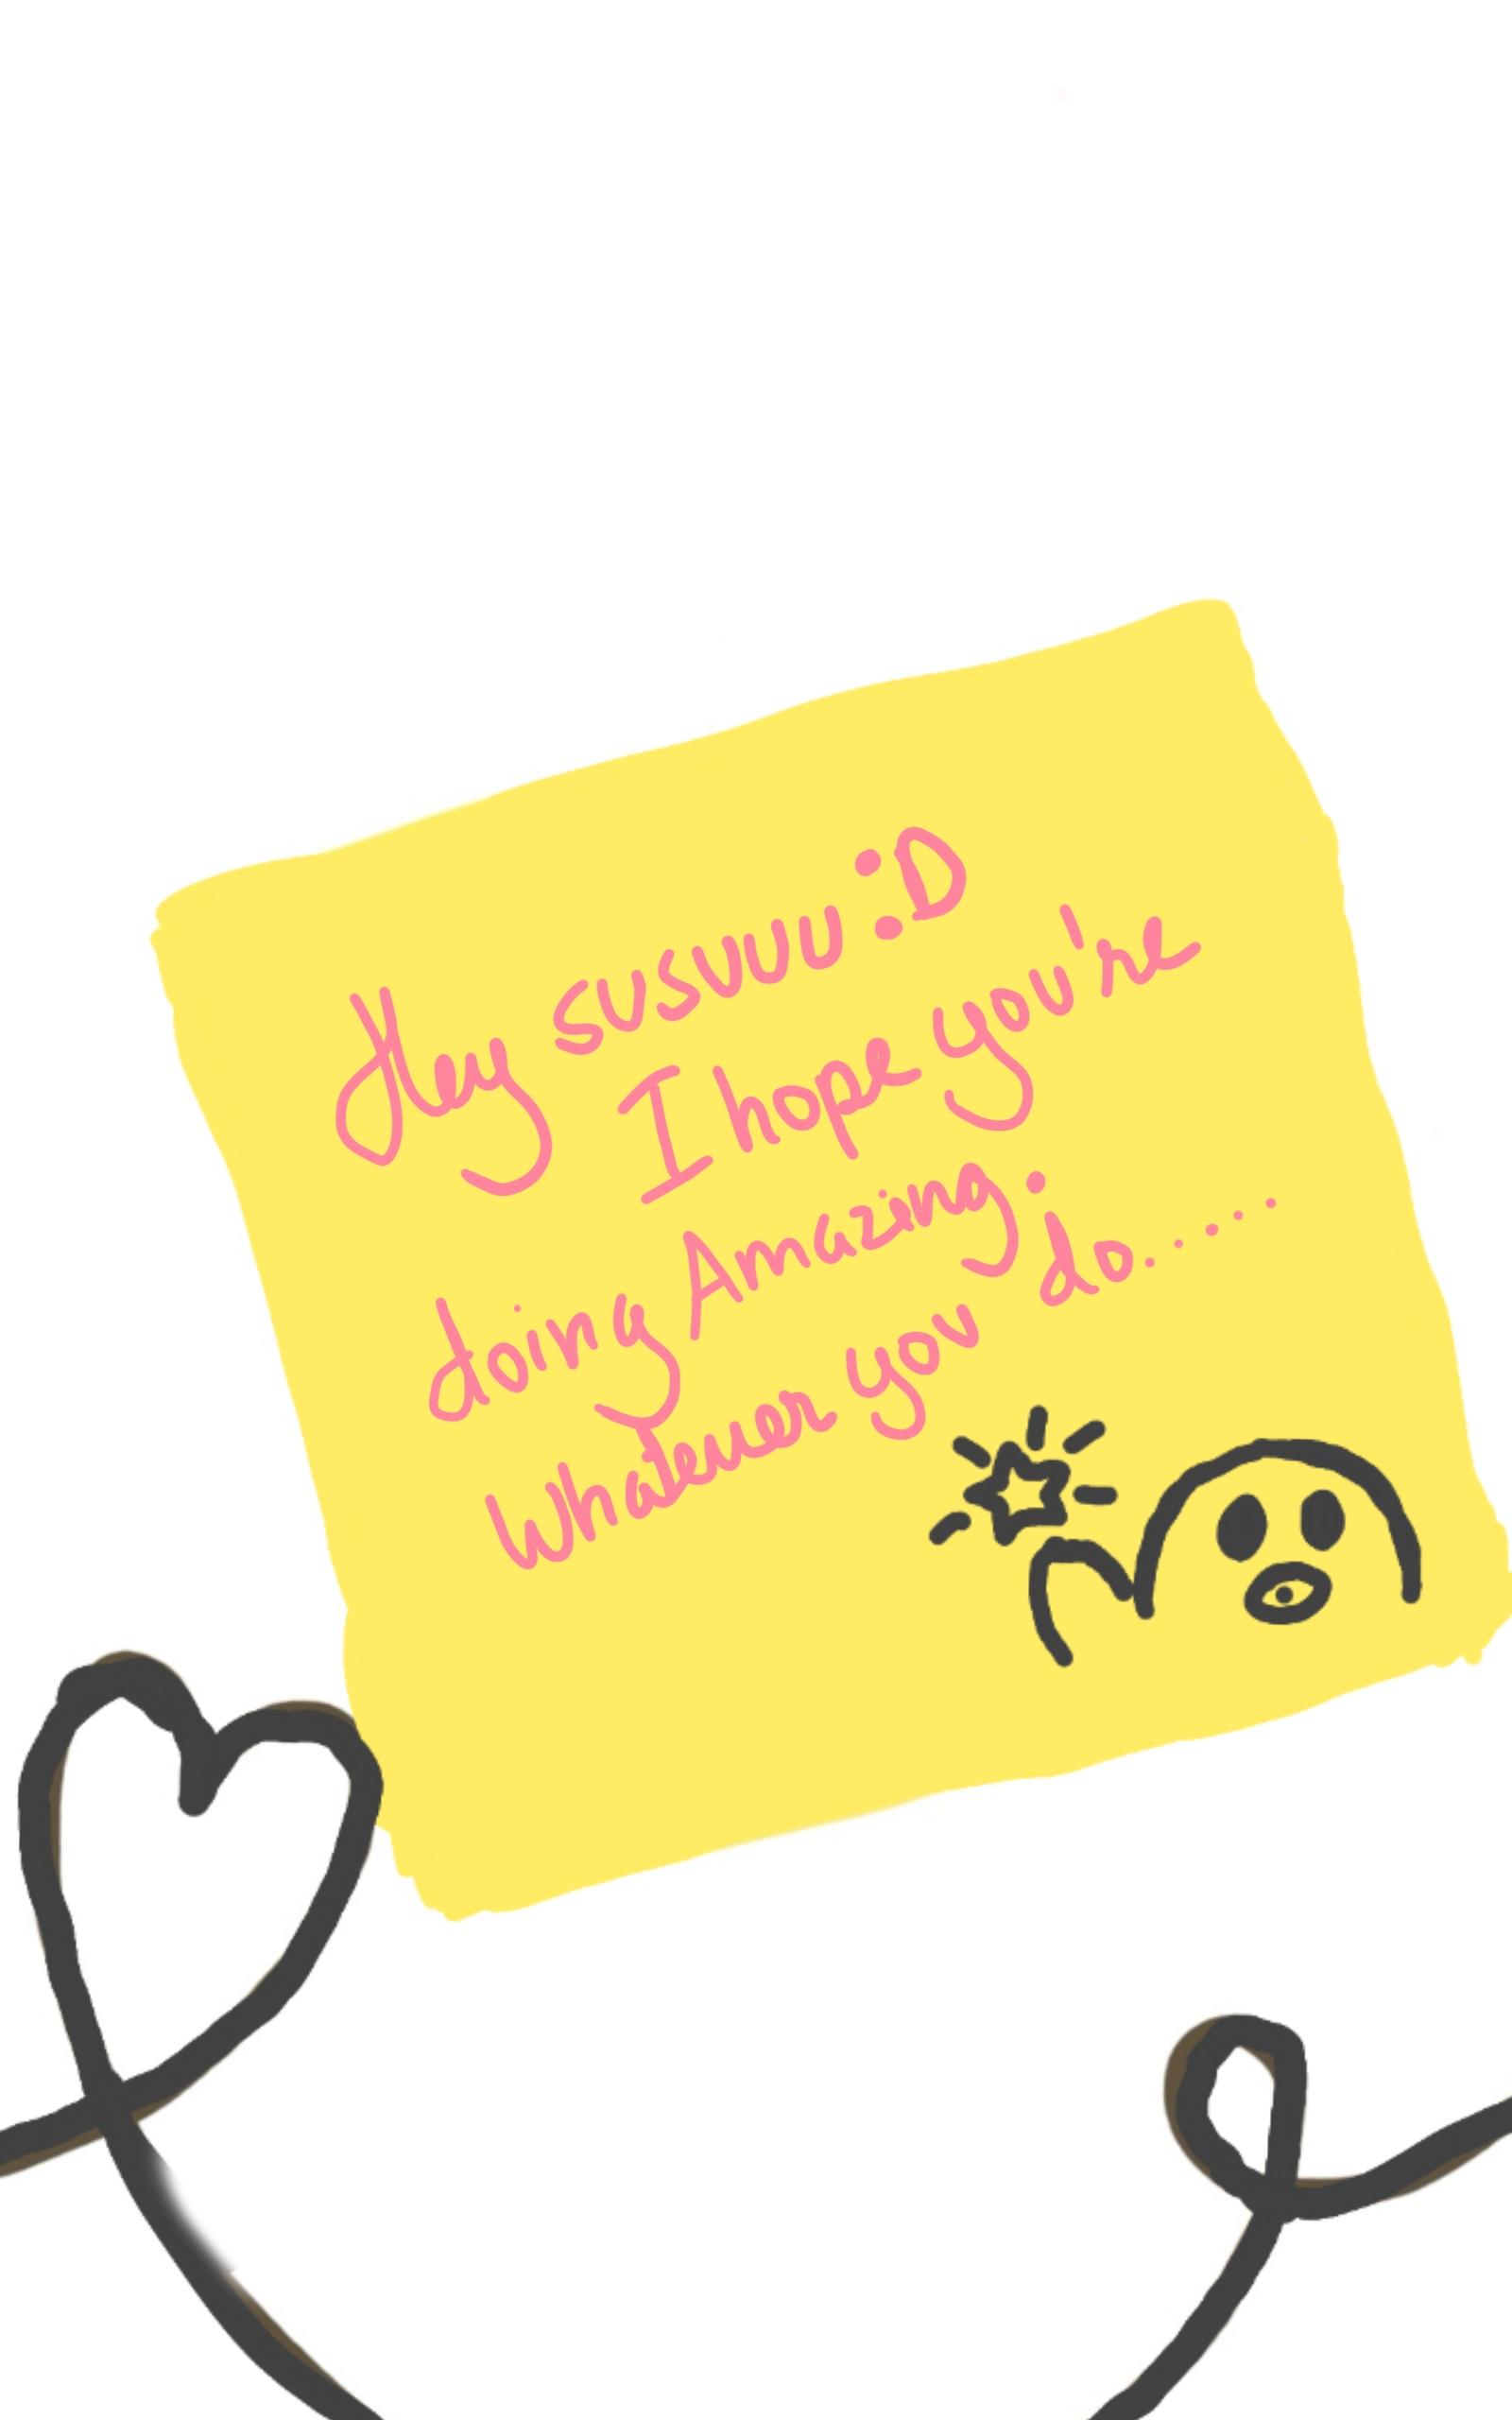 Hey susuuu :D
I hope you're
doing Amazing.
Whatever you do......